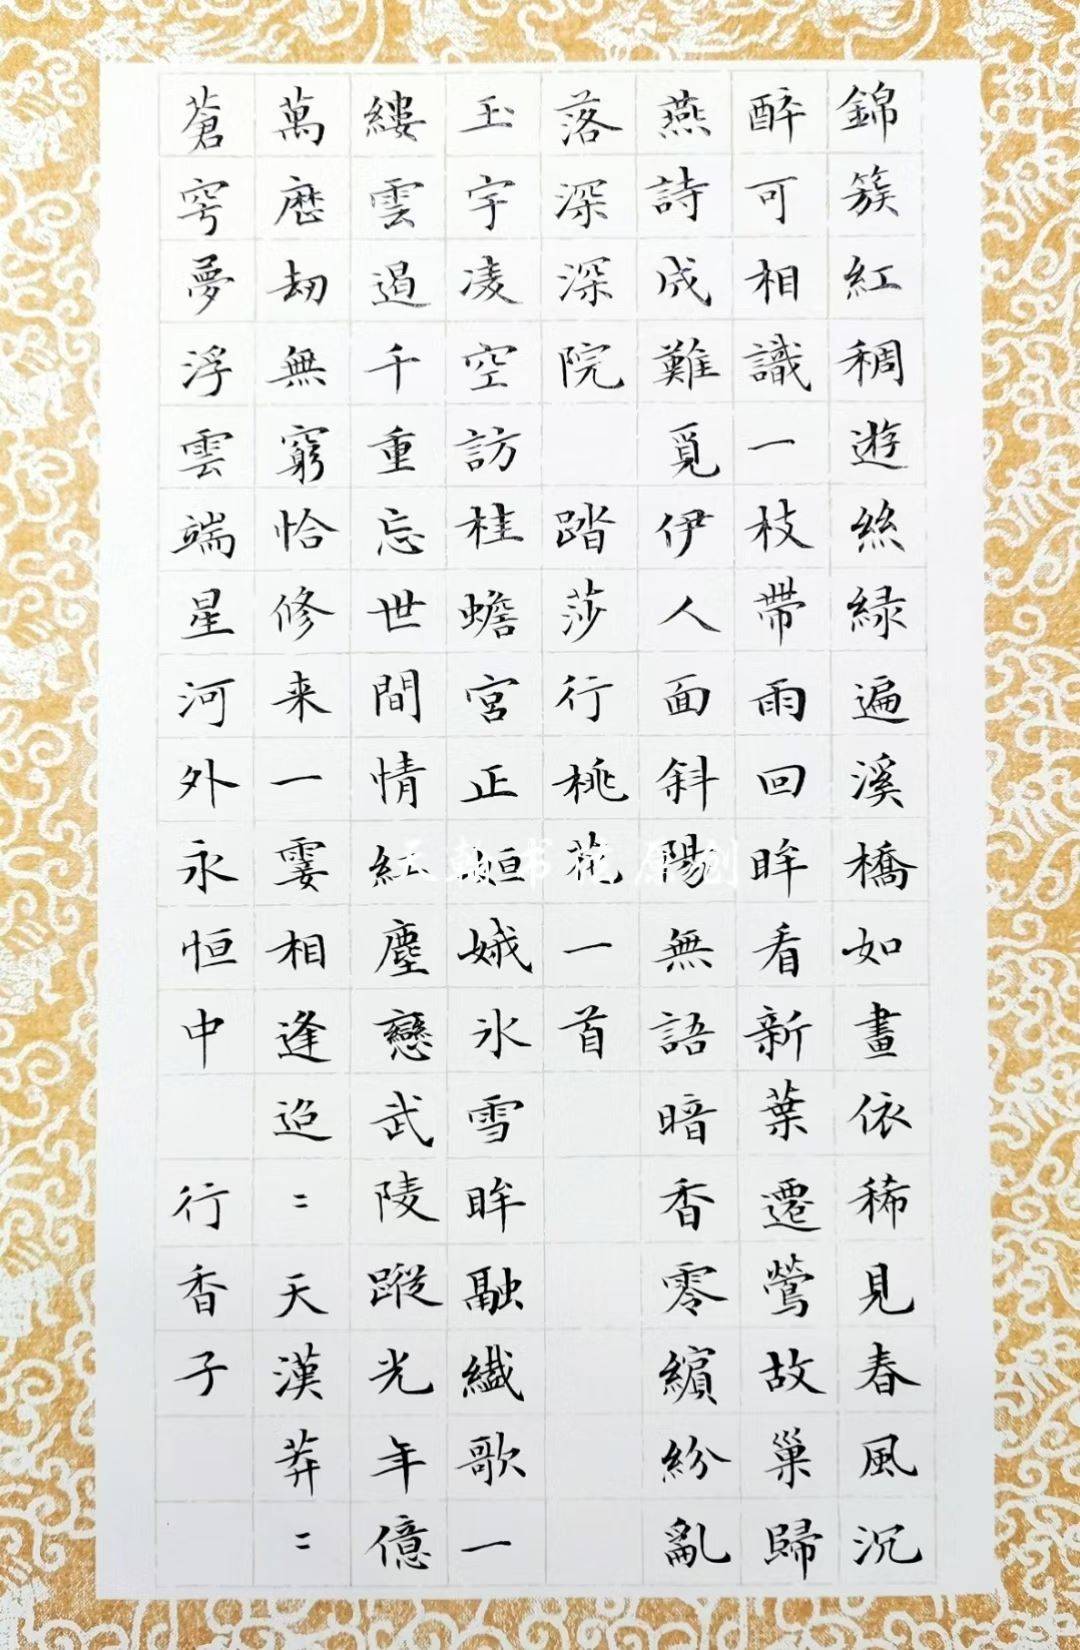 錦簇紅稠遊絲緑遍溪橋如畫依稀見春風沉
醉可相識一枝帶雨回眸看新葉遷鶯故巢歸
燕詩成難覓伊人面斜陽無語暗香零繽紛亂
落深深院 踏莎行桃花一首
玉宇凌空訪桂蟾宮正姮娥氷雪眸融繊歌一
縷雲過千重忘世間情紅塵戀武陵蹤光年億
萬歷劫無窮恰修来一霎相逢迢〻天漢莽〻
蒼穹夢浮雲端星河外永恒中 行香子
天朝书花原创